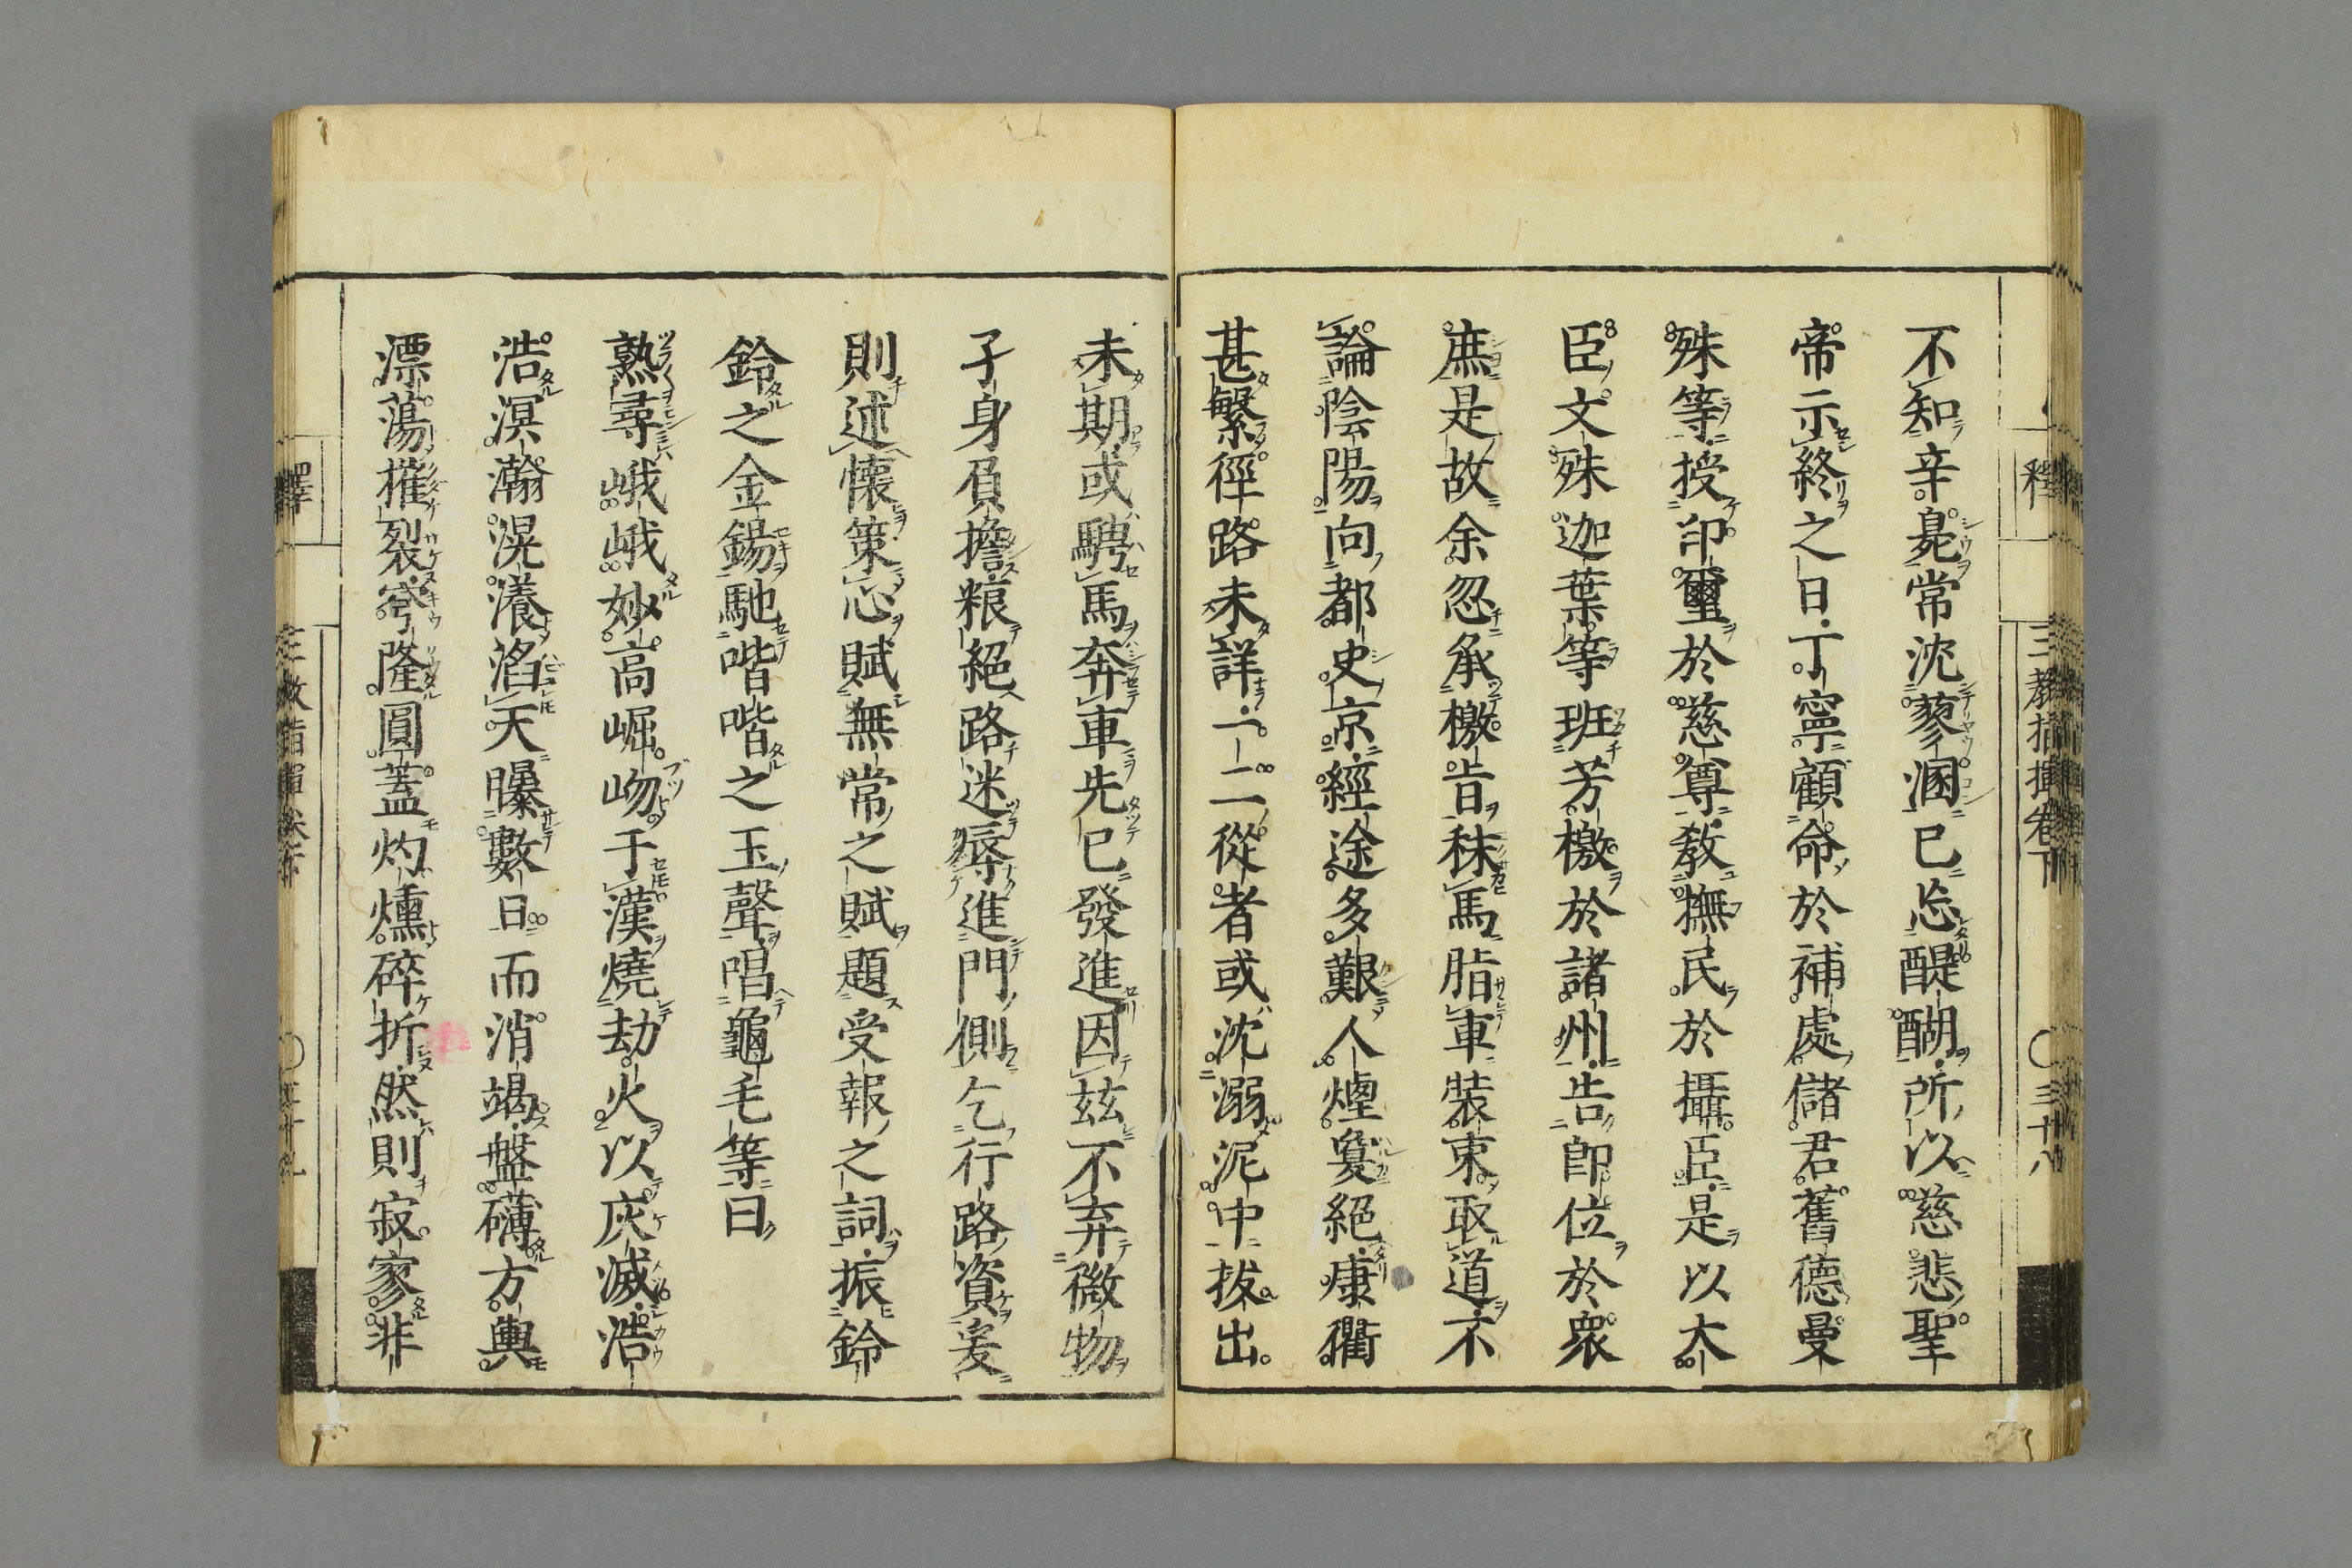 不知辛臰常沈蓼溷已忘醍醐所以慈悲聖
帝示終之日丁寧顧命於補處儲君舊德曼
殊等授印璽於慈尊教撫民於攝臣是以大
臣文殊迦葉等班芳檄於諸州告即位於衆
庶是故余忽承檄旨秣馬脂車裝束取道不
論陰陽向都史京經途多艱人煙敻絕康衢
甚繁徑路未詳一二從者或沈溺泥中拔出
未期或騁馬奔車先已發進因玆不弃微物
子身負擔粮絕路迷辱進門側乞行路資爰
則述懷策心賦無常之賦題受報之詞振鈴
鈴之金錫馳喈喈之玉聲唱龜毛等曰
熟尋峨峨妙高崛岉于漢燒劫火以灰滅浩
浩溟瀚滉瀁滔天曝數日而消竭盤礴方輿
漂蕩摧裂穹隆圓蓋灼燻碎折然則寂寥非
三教指揮卷下
三十八
釋